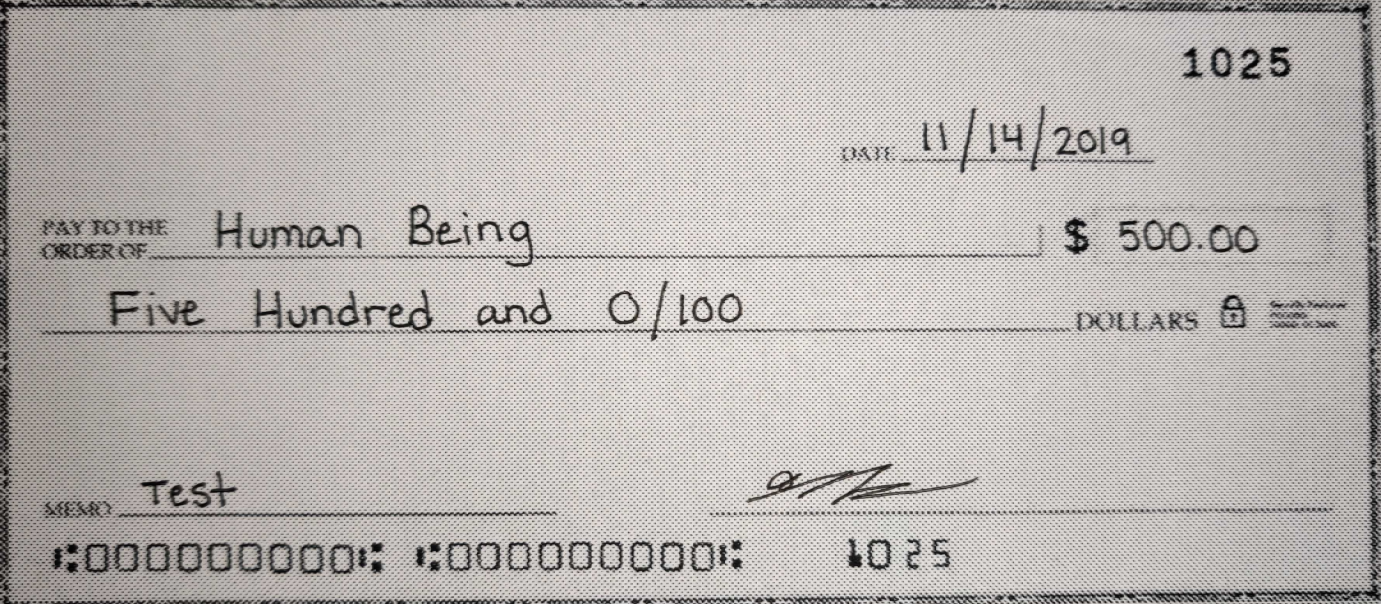 1025
DATE 11/14/2019
PAY TO THE
ORDER OF Human Being $ 500.00
Five Hundred and 0/100 DOLLARS
MEMO Test
⑆000000000⑆ ⑆000000000⑆ 1025